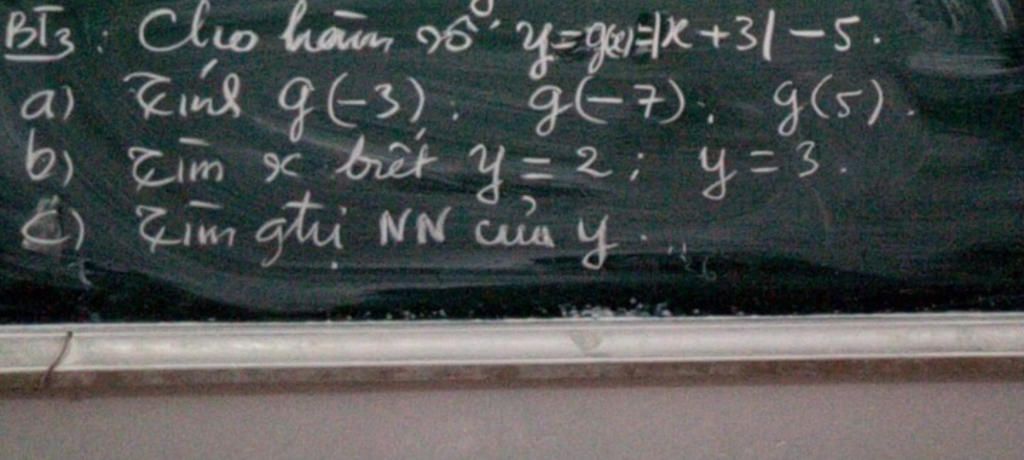 BT3: Cho hàm số y=g(x)=|x+3|-5.
a) Tính g(-3); g(-7); g(5).
b) Tìm x biết y=2; y=3.
c) Tìm gtrị NN của y.